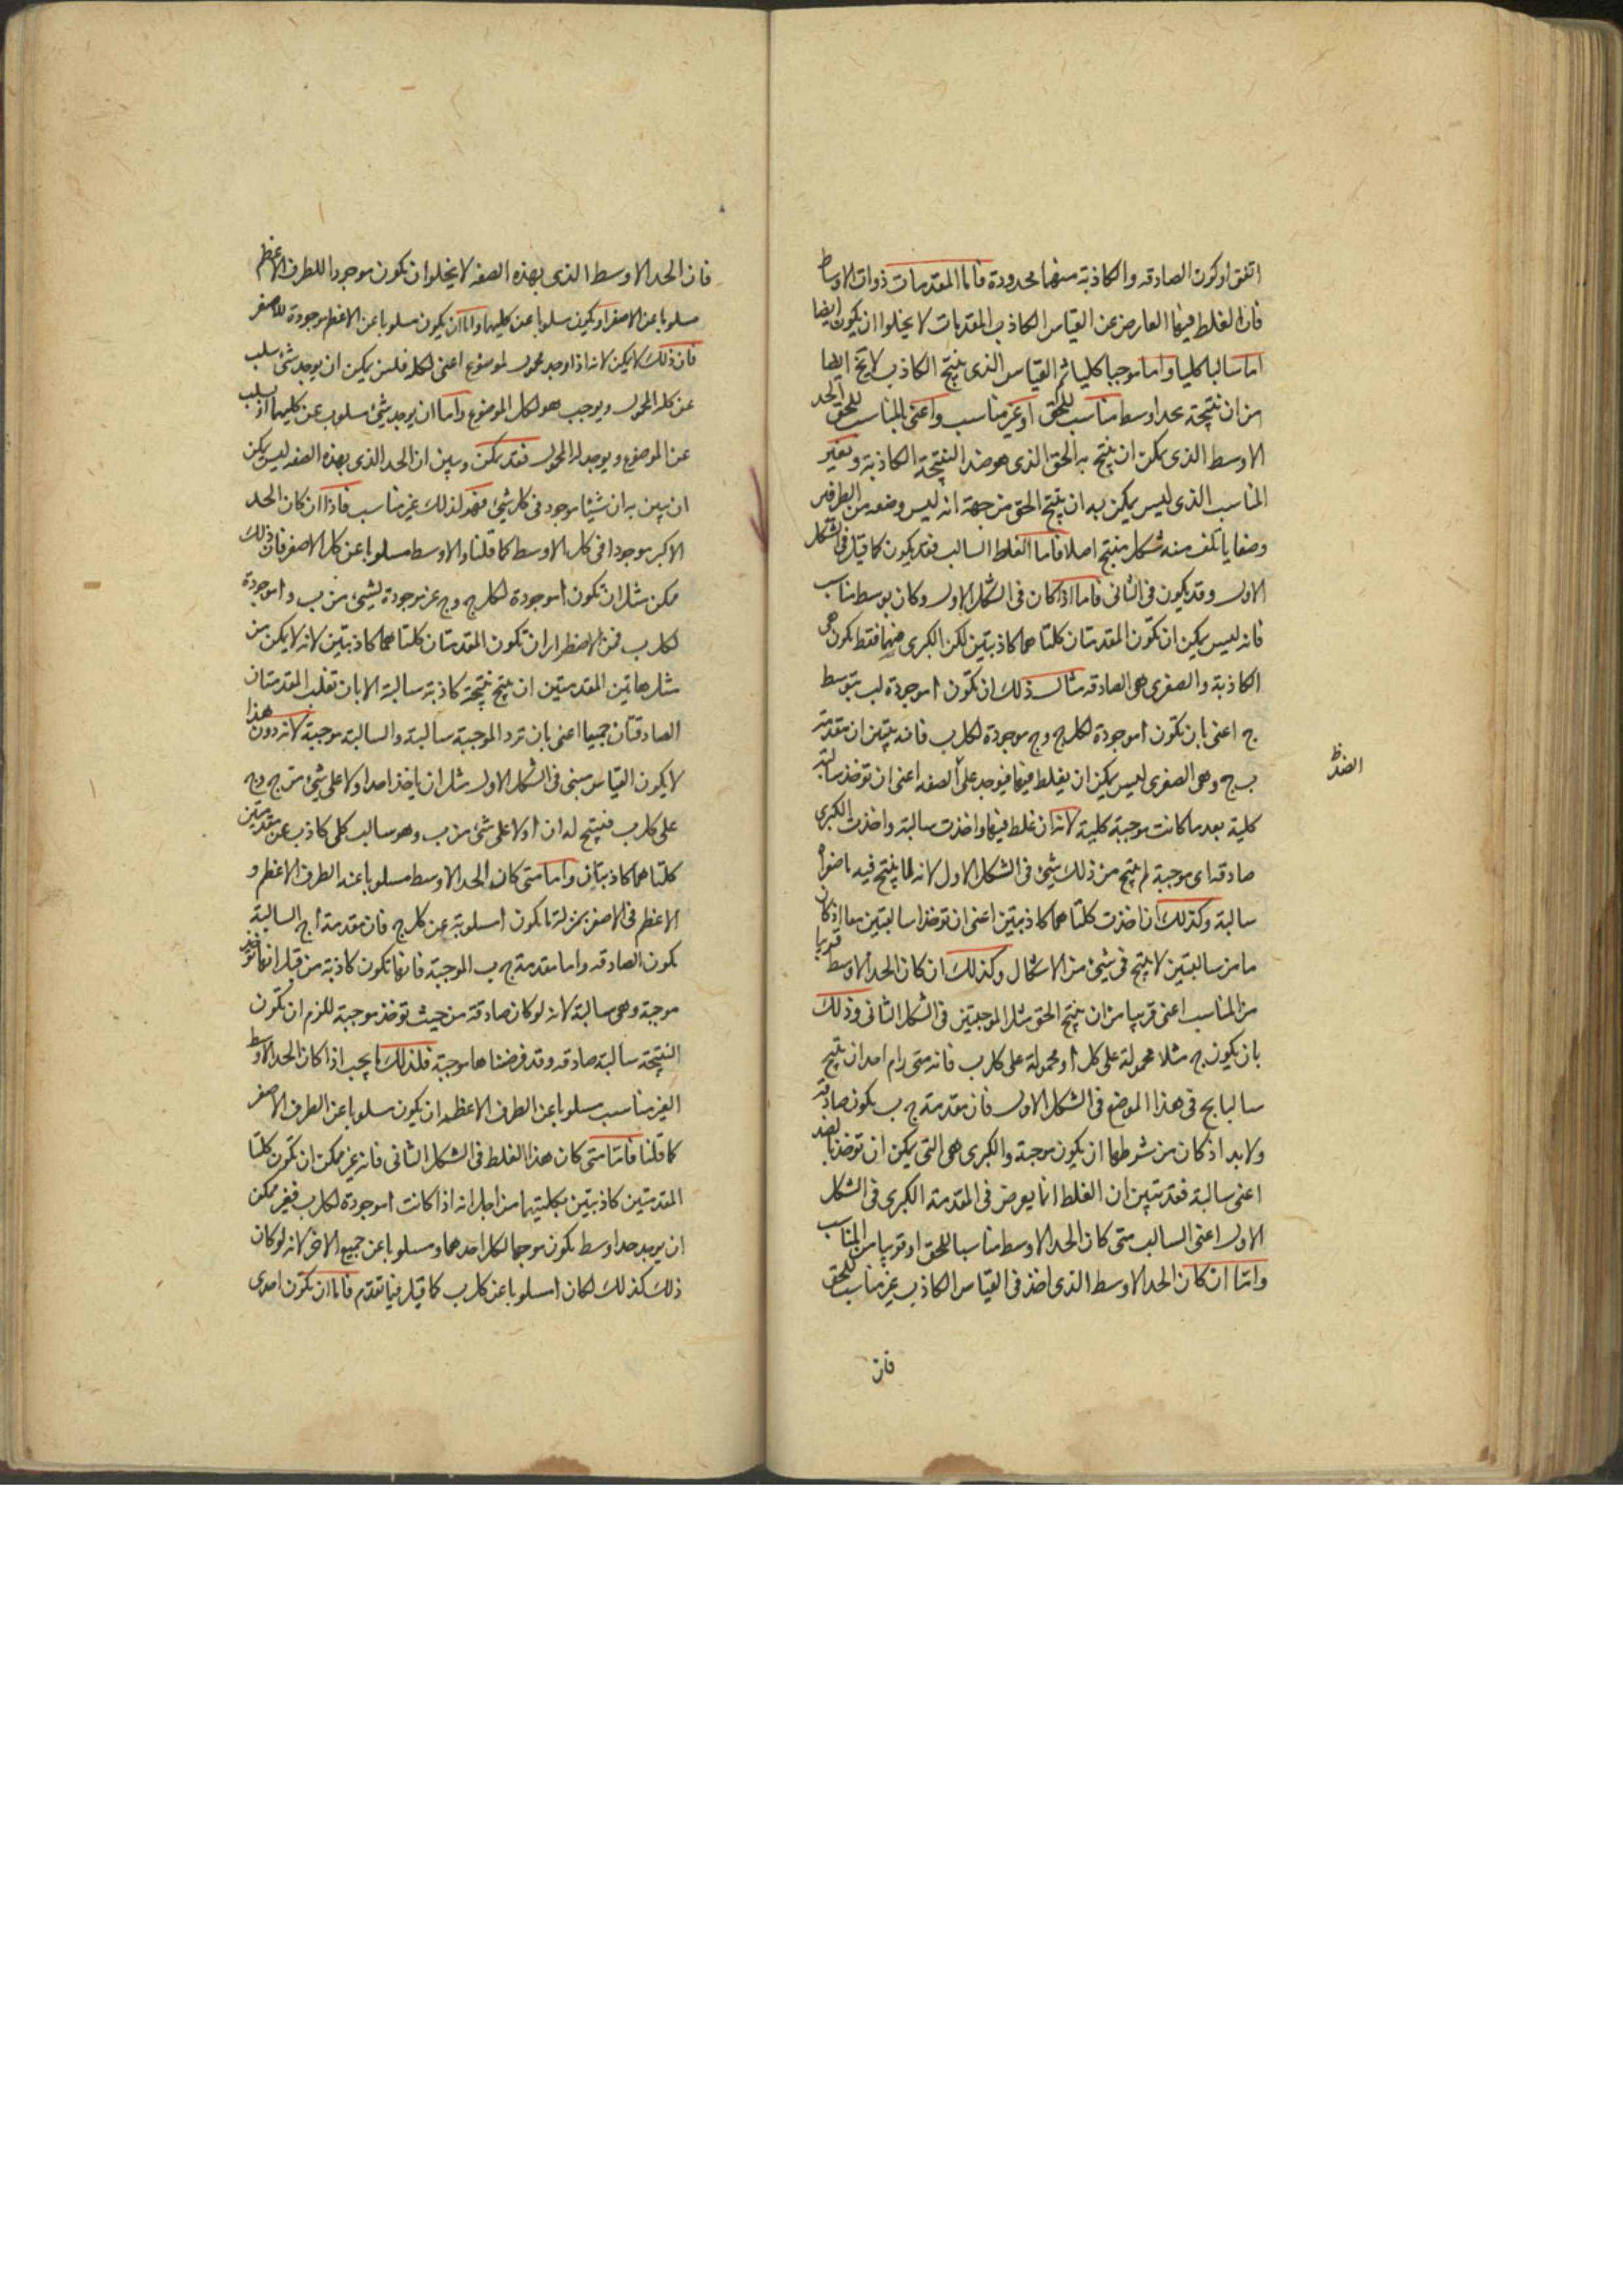 اتفق او كون الصادقه والكاذبة منهما محدودة فاما المقدمات ذوات الاوساط
فان الغلط فيها العارض عن القياس الكاذب المقدمات لا يخلوا ان يكون ايضا
اما سالبا كليا واما موجبا كليا ثم القياس الذى ينتج الكاذب لا يخ ايضا
من ان ينتجه بحد اوسط مناسب للحق او غير مناسب واعنى بالمناسب للحق الحد
الاوسط الذى يمكن ان ينتج به الحق الذى هو ضد النتيجة الكاذبة وبغير
المناسب الذى ليس يمكن به ان ينتج الحق من جهة انه ليس وضعه من الطرفين
وضعا ياتلف منه شكل منتج اصلا فاما الغلط السالب فقد يكون كما قيل فى الشكل
الاول وقد يكون فى الثانى فاما اذا كان فى الشكل الاول وكان بوسط مناسب
فانه ليس يمكن ان تكون المقدمتان كلتا هما كاذبتين لكن الكبرى منهما فقط تكون هى
الكاذبة والصغرى هى الصادقه مثال ذلك ان تكون ا موجودة لب بتوسط
ج اعنى بان تكون ا موجودة لكل ج وج موجودة لكل ب فانه يتبين ان مقدمة
ب ج وهى الصغرى ليس يمكن ان يغلط فيها فيوجد على الصفه اعنى ان توخذ سالبة
الضد ظ
كلية بعد ما كانت موجبة كلية لانه ان غلط فيها واخذت سالبة واخذت الكبرى
صادقه اى موجبة لم ينتج من ذلك شئ فى الشكل الاول لانه لا ينتج فيه ما صغراه
سالبة وكذلك ان اخذت كلتا هما كاذبتين اعنى ان توخذا سالبتين معا اذ كان
ما من سالبتين لا ينتج فى شئ من الاشكال وكذلك ان كان الحد الاوسط قريبا
من المناسب اعنى قريبا من ان ينتج الحق مثل الموجبتين فى الشكل الثانى وذلك
بان يكون ج مثلا محمولة على كل ا ومحمولة على كل ب فانه متى رام احد ان ينتج
سالبا بج فى هذا الموضع فى الشكل الاول فان مقدمة ج ب تكون صادقة
ولا بد اذ كان من شرطها ان يكون موجبة والكبرى هى التى يمكن ان توخذ بالضد
اعنى سالبة فقد تبين ان الغلط انما يعرض فى المقدمة الكبرى فى الشكل
الاول اعنى السالب متى كان الحد الاوسط مناسبا للحق او قريبا من المناسب
واما ان كان الحد الاوسط الذى اخذ فى القياس الكاذب غير مناسب للحق
فان
فان الحد الاوسط الذى بهذه الصفه لا يخلو ان تكون موجودا للطرف الاعظم
مسلوبا عن الاصغر او يكون مسلوبا عن كليهما واما ان يكون مسلوبا عن الاعظم موجودة للاصغر
فان ذلك لا يمكن لانه اذا وجد محمول لموضوع اعنى لكله فليس يمكن ان يوجد شئ يسلب
عن كل المحمول ويوجب هو لكل الموضوع واما ان يوجد شئ مسلوب عن كليهما او يسلب
عن الموضوع ويوجد للمحمول فقد يمكن وبين ان الحد الذى بهذه الصفه ليس يمكن
ان يبين به ان شيئا موجود فى كل شئ فهو لذلك غير مناسب فاذا ان كان الحد
الاكبر موجودا فى كل الاوسط كما قلنا والاوسط مسلوبا عن كل الاصغر فان ذلك
ممكن مثل ان تكون ا موجودة لكل ج وج غير موجودة لشئ من ب وا موجودة
لكل ب فمن الاضطرار ان تكون المقدمتان كلتا هما كاذبتين لانه لا يمكن من
مثل هاتين المقدمتين ان ينتج نتيجة كاذبة سالبة الا بان تقلب المقدمتان
الصادقتان جميعا اعنى بان ترد الموجبة سالبة والسالبة موجبة لانه دون هذا
لا يكون القياس مبنى فى الشكل الاول مثل ان ياخذ احد ا ولا على شئ من ج وج
على كل ب فينتج له ان ا ولا على شئ من ب وهو سالب كلى كاذب عن مقدمتين
كلتا هما كاذبتان واما متى كان الحد الاوسط مسلوبا عنه الطرف الاعظم و
الاعظم فى الاصغر بمنزلة ما يكون ا مسلوبة عن كل ج فان مقدمة ا ج السالبة
تكون الصادقه واما مقدمة ج ب الموجبة فانها تكون كاذبة من قبل انها توخذ
موجبة وهى سالبة لانه لو كان صادقة من حيث توخذ موجبة للزم ان تكون
النتيجة سالبة صادقه وقد فرضناها موجبة فلذلك ما يجب اذا كان الحد الاوسط
الغير مناسب مسلوبا عن الطرف الاعظم ان يكون مسلوبا عن الطرف الاصغر
كما قلنا فاما متى كان هذا الغلط فى الشكل الثانى فانه غير ممكن ان تكون كلتا
المقدمتين كاذبتين بكليتهما من اجل انه اذا كانت ا موجودة لكل ب فغير ممكن
ان يوجد حد اوسط تكون موجبا لكل احدهما ومسلوبا عن جميع الاخر لانه لو كان
ذلك كذلك لكان ا مسلوبا عن كل ب كما قيل فيما تقدم فاما ان تكون احدى